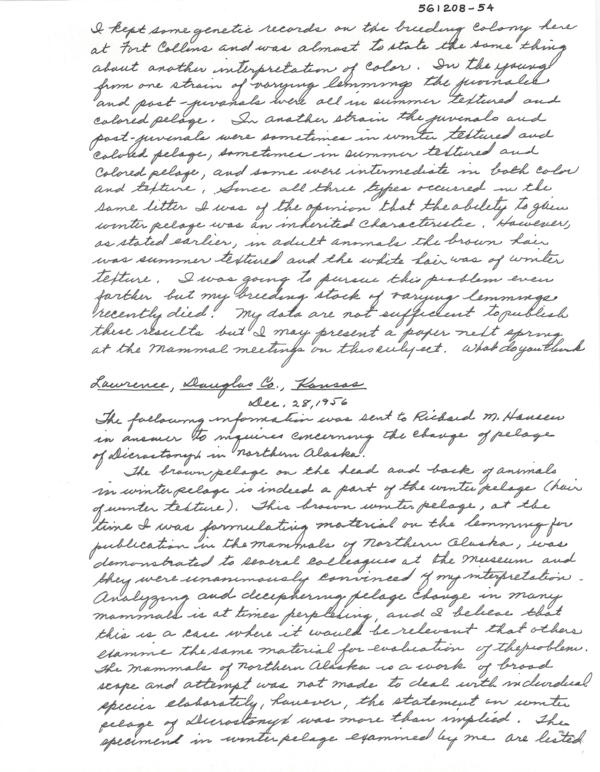 561208-54
I kept some genetic records on the breeding colony here
at Fort Collins and was almost to state the same thing
about another interpretation of color. In the young
from one strain of varying lemmings the juvinales
and post-juvanals were all in summer textured and
colored pelage. In another strain the juvenals and
post-juvenals were sometimes in winter textured and
colored pelage, sometimes in summer textured and
colored pelage, and some were intermediate in both color
and texture. Since all three types occurred in the
same litter I was of the opinion that the ability to grow
winter pelage was an inherited characteristic. However,
as stated earlier, in adult animals the brown hair
was summer textured and the white hair was of winter
texture. I was going to pursue this problem even
farther but my breeding stock of varying lemmings
recently died. My data are not sufficient to publish
these results but I may present a paper next spring
at the Mammal meetings on this subject. What do you think
Lawrence, Douglas Co., Kansas
Dec. 28, 1956
The following information was sent to Richard M. Hansen
in answer to inquires concerning the change of pelage
of Dicrostonyx in Northern Alaska.
The brown pelage on the head and back of animals
in winter pelage is indeed a part of the winter pelage (hair
of winter texture). This brown winter pelage, at the
time I was formulating material on the lemming for
publication in the Mammals of Northern Alaska, was
demonstrated to several colleagues at the Museum and
they were unanimously convinced of my interpretation.
Analyzing and deciphering pelage change in many
mammals is at times perplexing, and I believe that
this is a case where it would be relevant that others
examine the same material for evaluation of the problem.
The Mammals of Northern Alaska is a work of broad
scope and attempt was not made to deal with individual
species elaborately, however, the statement on winter
pelage of Dicrostonyx was more than implied. The
specimens in winter pelage examined by me are listed